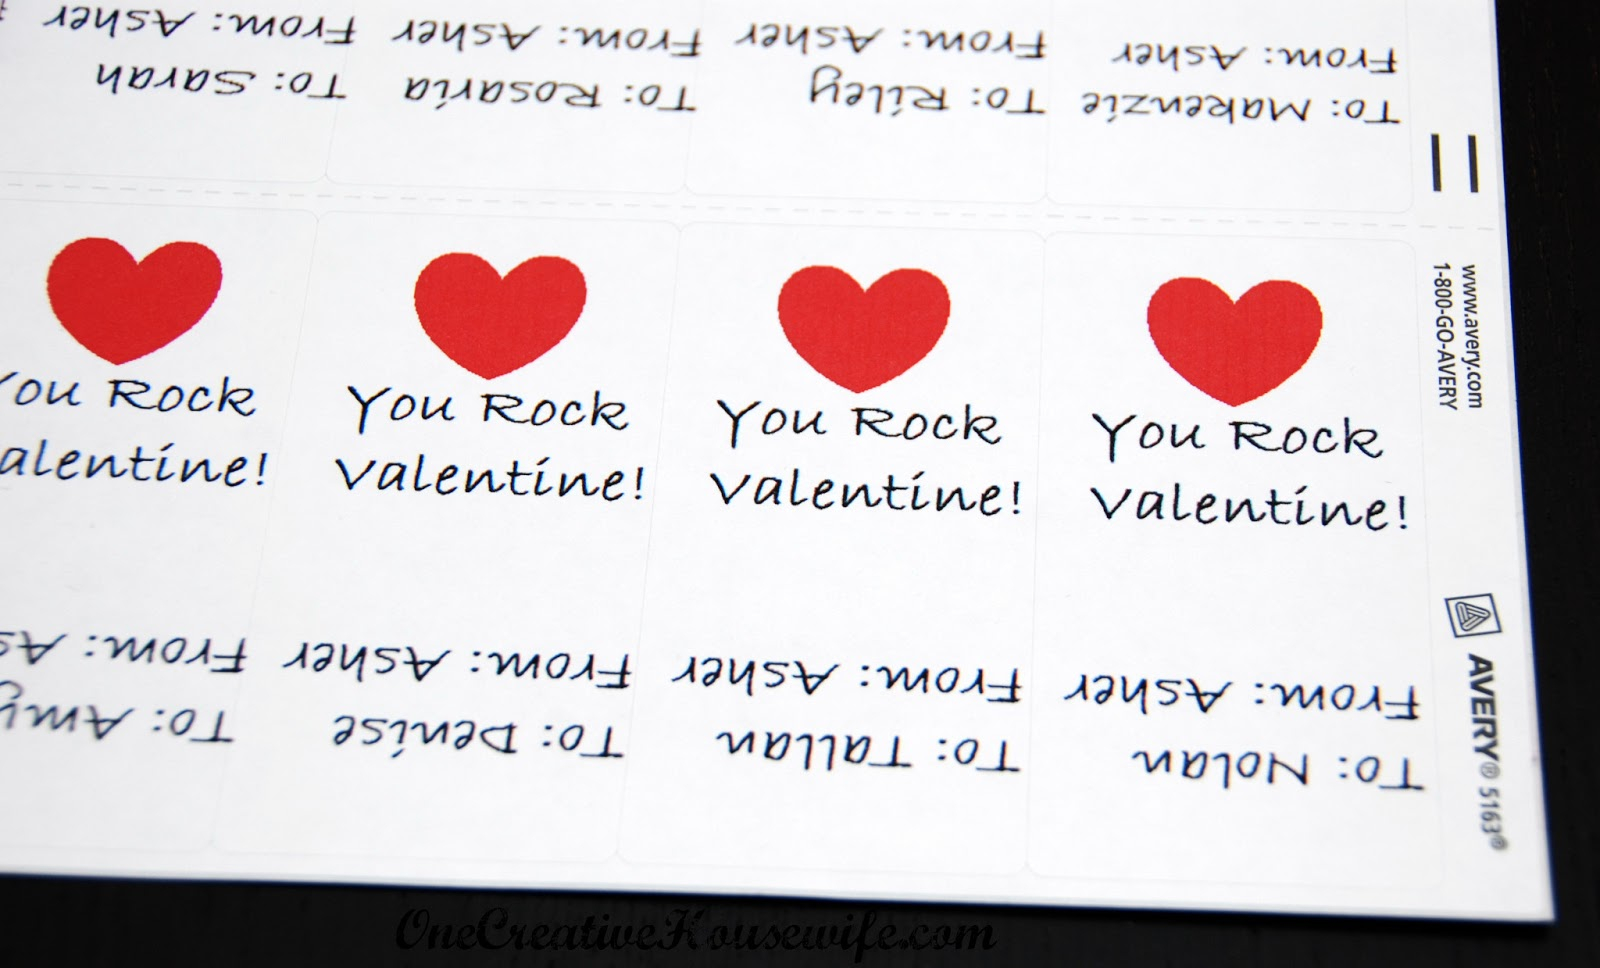 To: Sarah
From: Asher
To: Rosaria
From: Asher
To: Riley
From: Asher
To: Makenzie
From: Asher
You Rock
Valentine!
You Rock
Valentine!
You Rock
Valentine!
You Rock
Valentine!
To: Amy
From: As
To: Denise
From: Asher
To: Tallan
From: Asher
To: Nolan
From: Asher
www.avery.com
1-800-GO-AVERY
AVERY® 5163®
OneCreativeHousewife.com